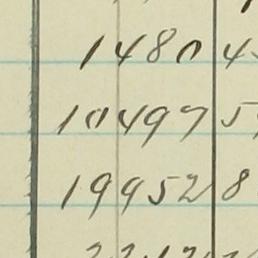 1480 4
10497 5
19952 8